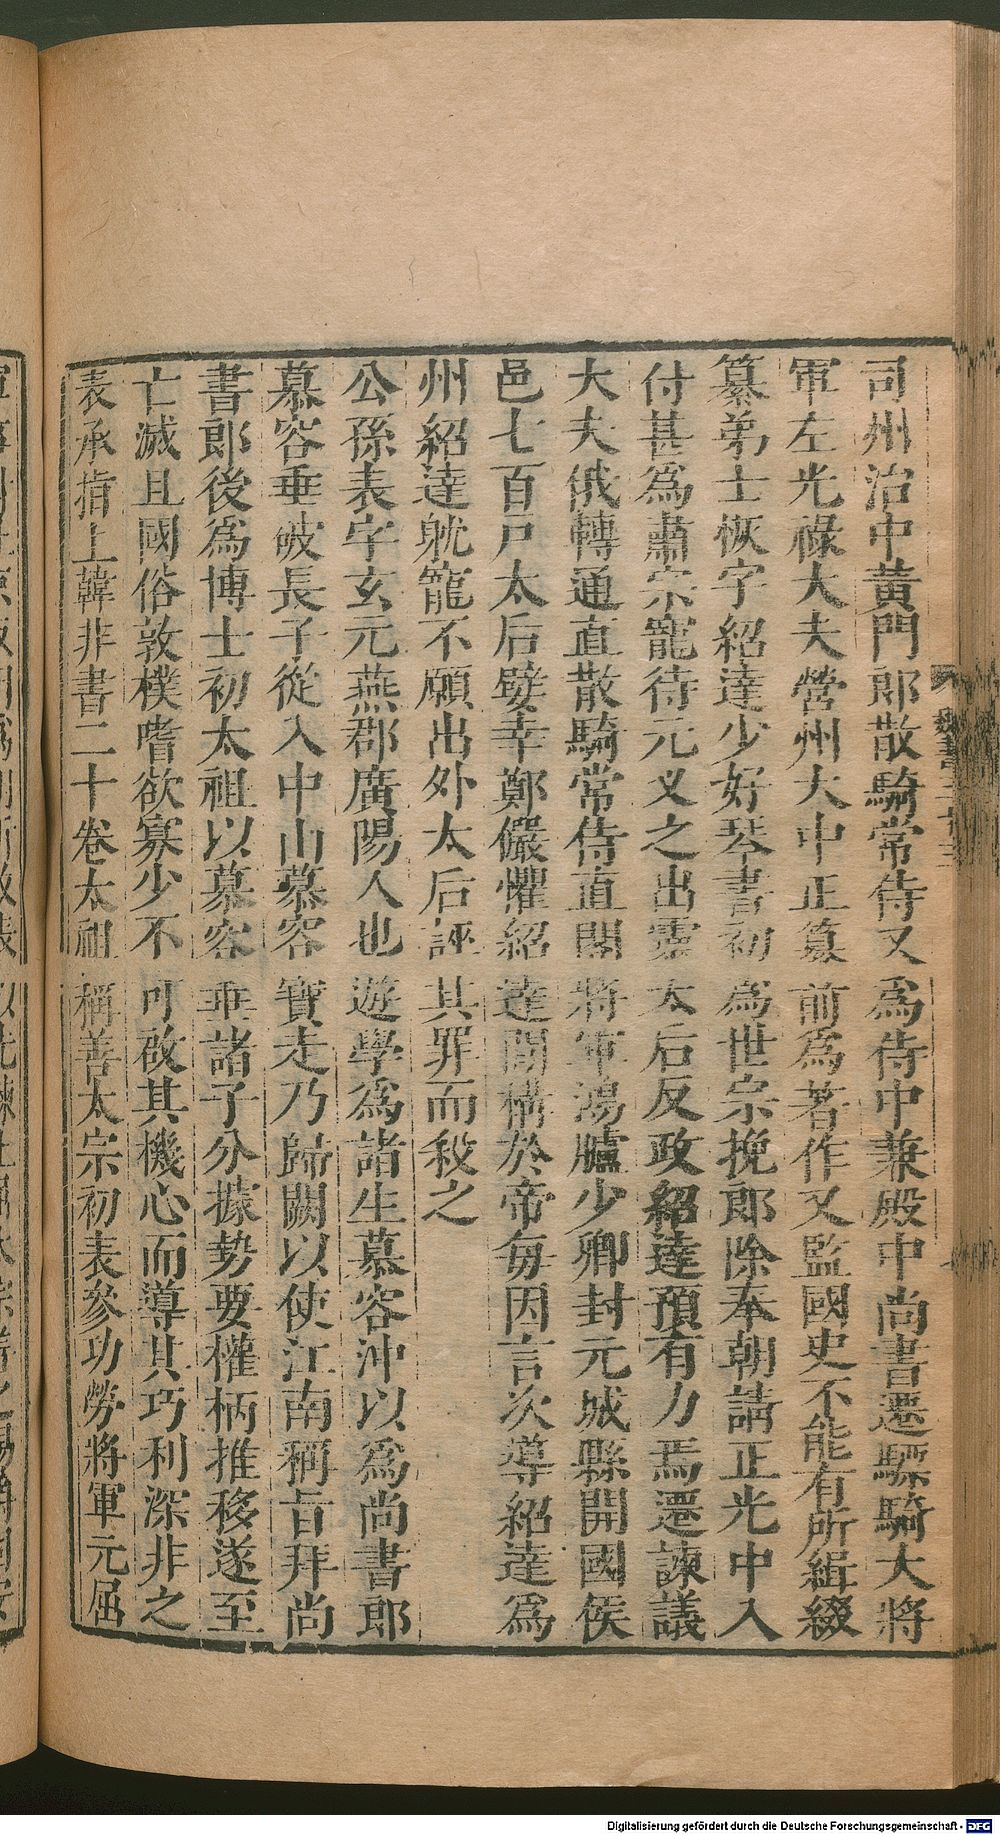 司州治中黃門郎散騎常侍又爲侍中兼殿中尚書遷驃騎大將
軍左光祿大夫營州大中正纂前爲著作又監國史不能有所緝綴
纂弟士恢字紹達少好琴書初爲世宗挽郎除奉朝請正光中入
付甚爲肅宗寵待元义之出靈太后反政紹達預有力焉遷諫議
大夫俄轉通直散騎常侍直閤將軍鴻臚少卿封元城縣開國侯
邑七百戸太后嬖幸鄭儼懼紹達間構於帝每因言次導紹達爲
州紹達躭寵不願出外太后誣其罪而殺之
公孫表字玄元燕郡廣陽人也遊學爲諸生慕容沖以爲尚書郎
慕容垂破長子從入中山慕容寶走乃歸闕以使江南稱旨拜尚
書郎後爲博士初太祖以慕容垂諸子分據勢要權柄推移遂至
亡滅且國俗敦樸嗜欲寡少不可啟其機心而導其巧利深非之
表承指上韓非書二十卷太祖稱善太宗初表參功勞將軍元屈
Digitalisierung gefördert durch die Deutsche Forschungsgemeinschaft - DFG